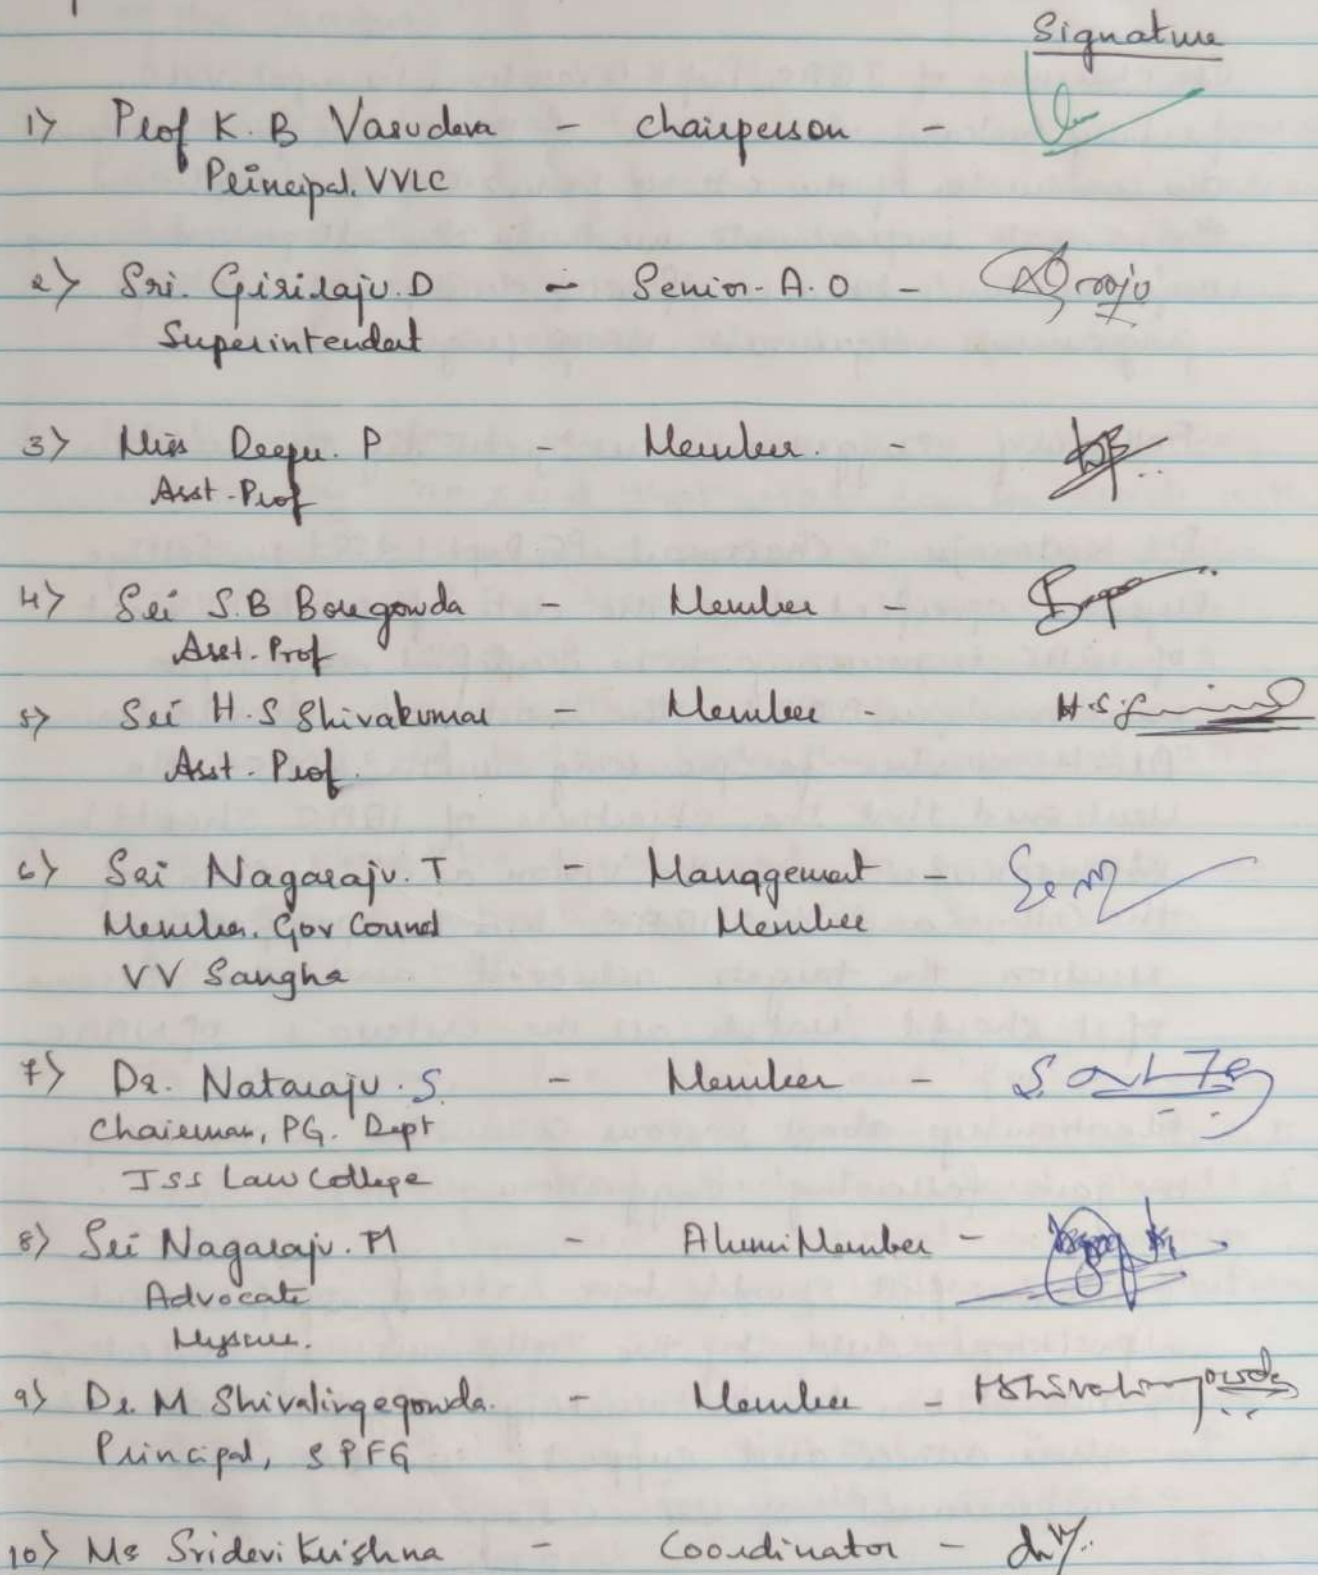 Signature
1) Prof K. B Vasudeva - Chairperson -
Principal. VVLC
2) Sri. Giriraju. D - Senior. A. O - raju
Superintendent
3) Miss Deepu. P - Member. -
Asst. Prof
4) Sri S.B Boregowda - Member -
Asst. Prof
5) Sri H. S Shivakumar - Member - H.S.
Asst. Prof.
6) Sri Nagaraju. T - Management -
Member. Gov Council Member
VV Sangha
7) Dr. Nataraju. S. - Member - S.
Chairman, PG. Dept
JSS Law College
8) Sri Nagaraju. M - Alumi Member -
Advocate
Mysuru.
9) Dr. M Shivalingegowda. - Member - MShivalingowda
Principal, SPFG
10) Ms Sridevi Krishna - Coordinator -